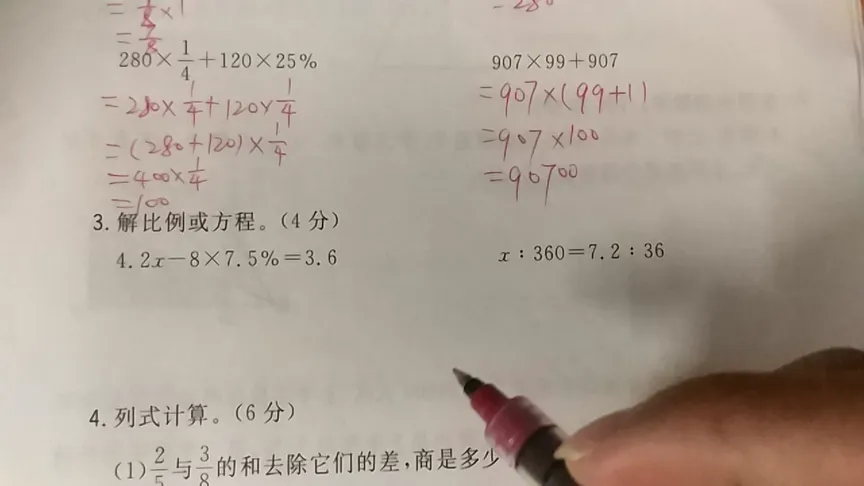 = 1/8 × 1
= 7/8
280 × 1/4 + 120 × 25%
= 280 × 1/4 + 120 × 1/4
= (280 + 120) × 1/4
= 400 × 1/4
= 100
= 280
907 × 99 + 907
= 907 × (99 + 1)
= 907 × 100
= 90700
3. 解比例或方程。(4 分)
4.2x - 8 × 7.5% = 3.6
x : 360 = 7.2 : 36
4. 列式计算。(6 分)
(1) 2/5 与 3/8 的和去除它们的差,商是多少